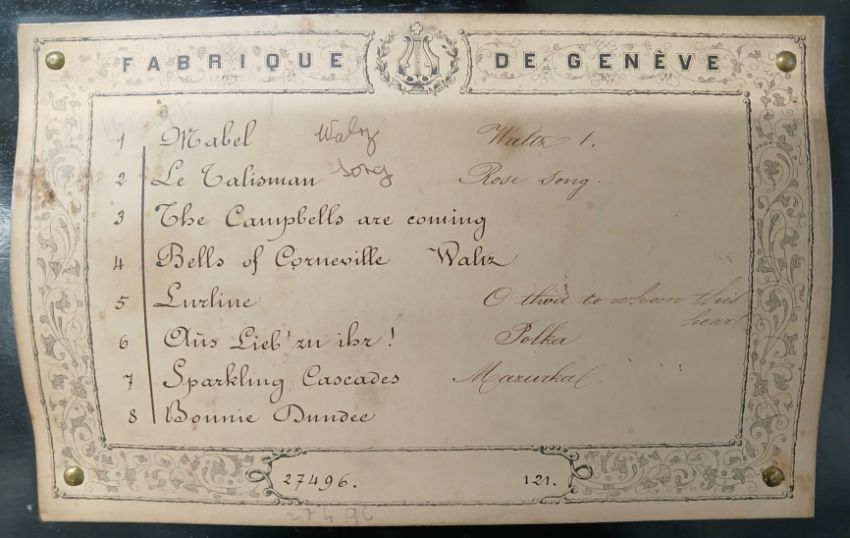 FABRIQUE DE GENÈVE
1 Mabel Waltz Waltz 1.
2 Le Talisman Song Rose Song.
3 The Campbells are coming
4 Bells of Corneville Waltz
5 Lurline O thou to whom this heart
6 Aüs Lieb' zu ihr! Polka
7 Sparkling Cascades Mazurka
8 Bonnie Dundee
27496. 121.
27496